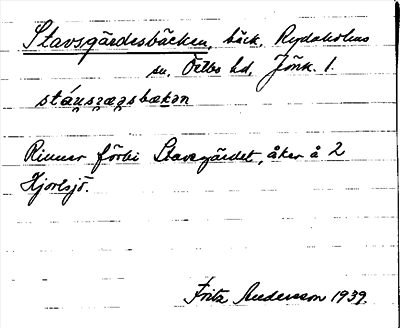 Stavsgärdesbäcken, bäck, Rydaholms
sn. Östbo hd. Jönk. l.
Rinner förbi Stavsgärdet, åker å 2
Hjortsjö.
Fritz Andersson 1939.